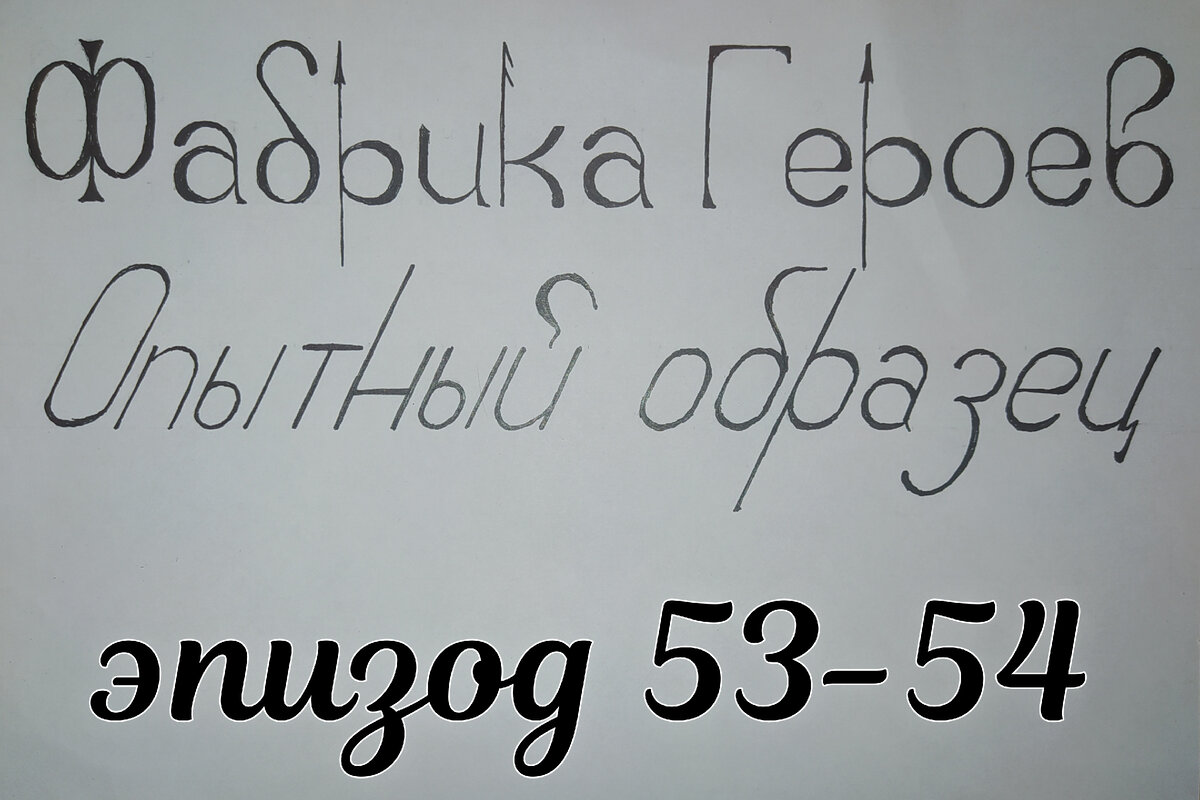 Фабрика Героев
Опытный образец
эпизод 53-54